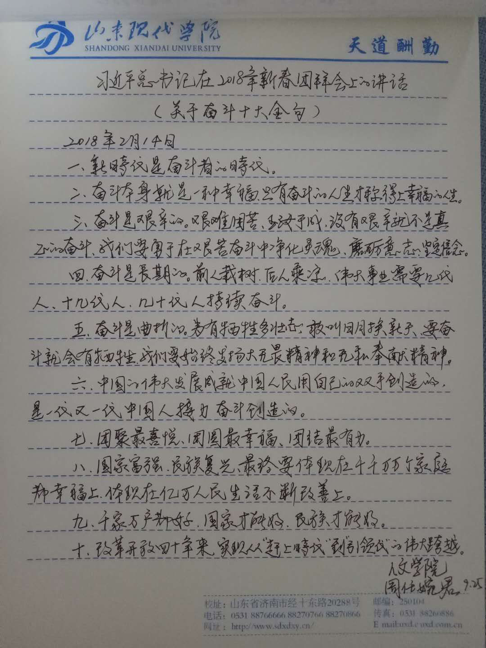 山东现代学院
SHANDONG XIANDAI UNIVERSITY
天道酬勤
习近平总书记在2018年新春团拜会上的讲话
（关于奋斗十大金句）
2018年2月14日
一、新時代是奋斗者的時代。
二、奋斗本身就是一种幸福,只有奋斗的人生才称得上幸福的人生。
三、奋斗是艰辛的。艰难困苦、玉汝于成,没有艰辛就不是真
正的奋斗,我们要勇于在艰苦奋斗中净化灵魂、磨砺意志、坚定信念。
四、奋斗是长期的。前人栽树、后人乘凉,伟大事业需要几代
人、十几代人、几十代人持续奋斗。
五、奋斗是曲折的,为有牺牲多壮志,敢叫日月换新天,要奋
斗就会有牺牲,我们要始终发扬大无畏精神和无私奉献精神。
六、中国的伟大发展成就中国人民用自己的双手创造的,
是一代又一代中国人接力奋斗创造的。
七、团聚最喜悦、团圆最幸福、团结最有力。
八、国家富强,民族复兴,最终要体现在千千万万个家庭
都幸福上,体现在亿万人民生活不断改善上。
九、千家万户都好,国家才能好,民族才能好。
十、改革开放四十年来,实现从"赶上時代"到"引领時代"的伟大跨越。
人文学院
9.25
校址：山东省济南市经十东路20288号 邮编：250104
电话：0531 88766666 88270766 88270866 传真：0531
网址：http://www.sduhxy.cn/